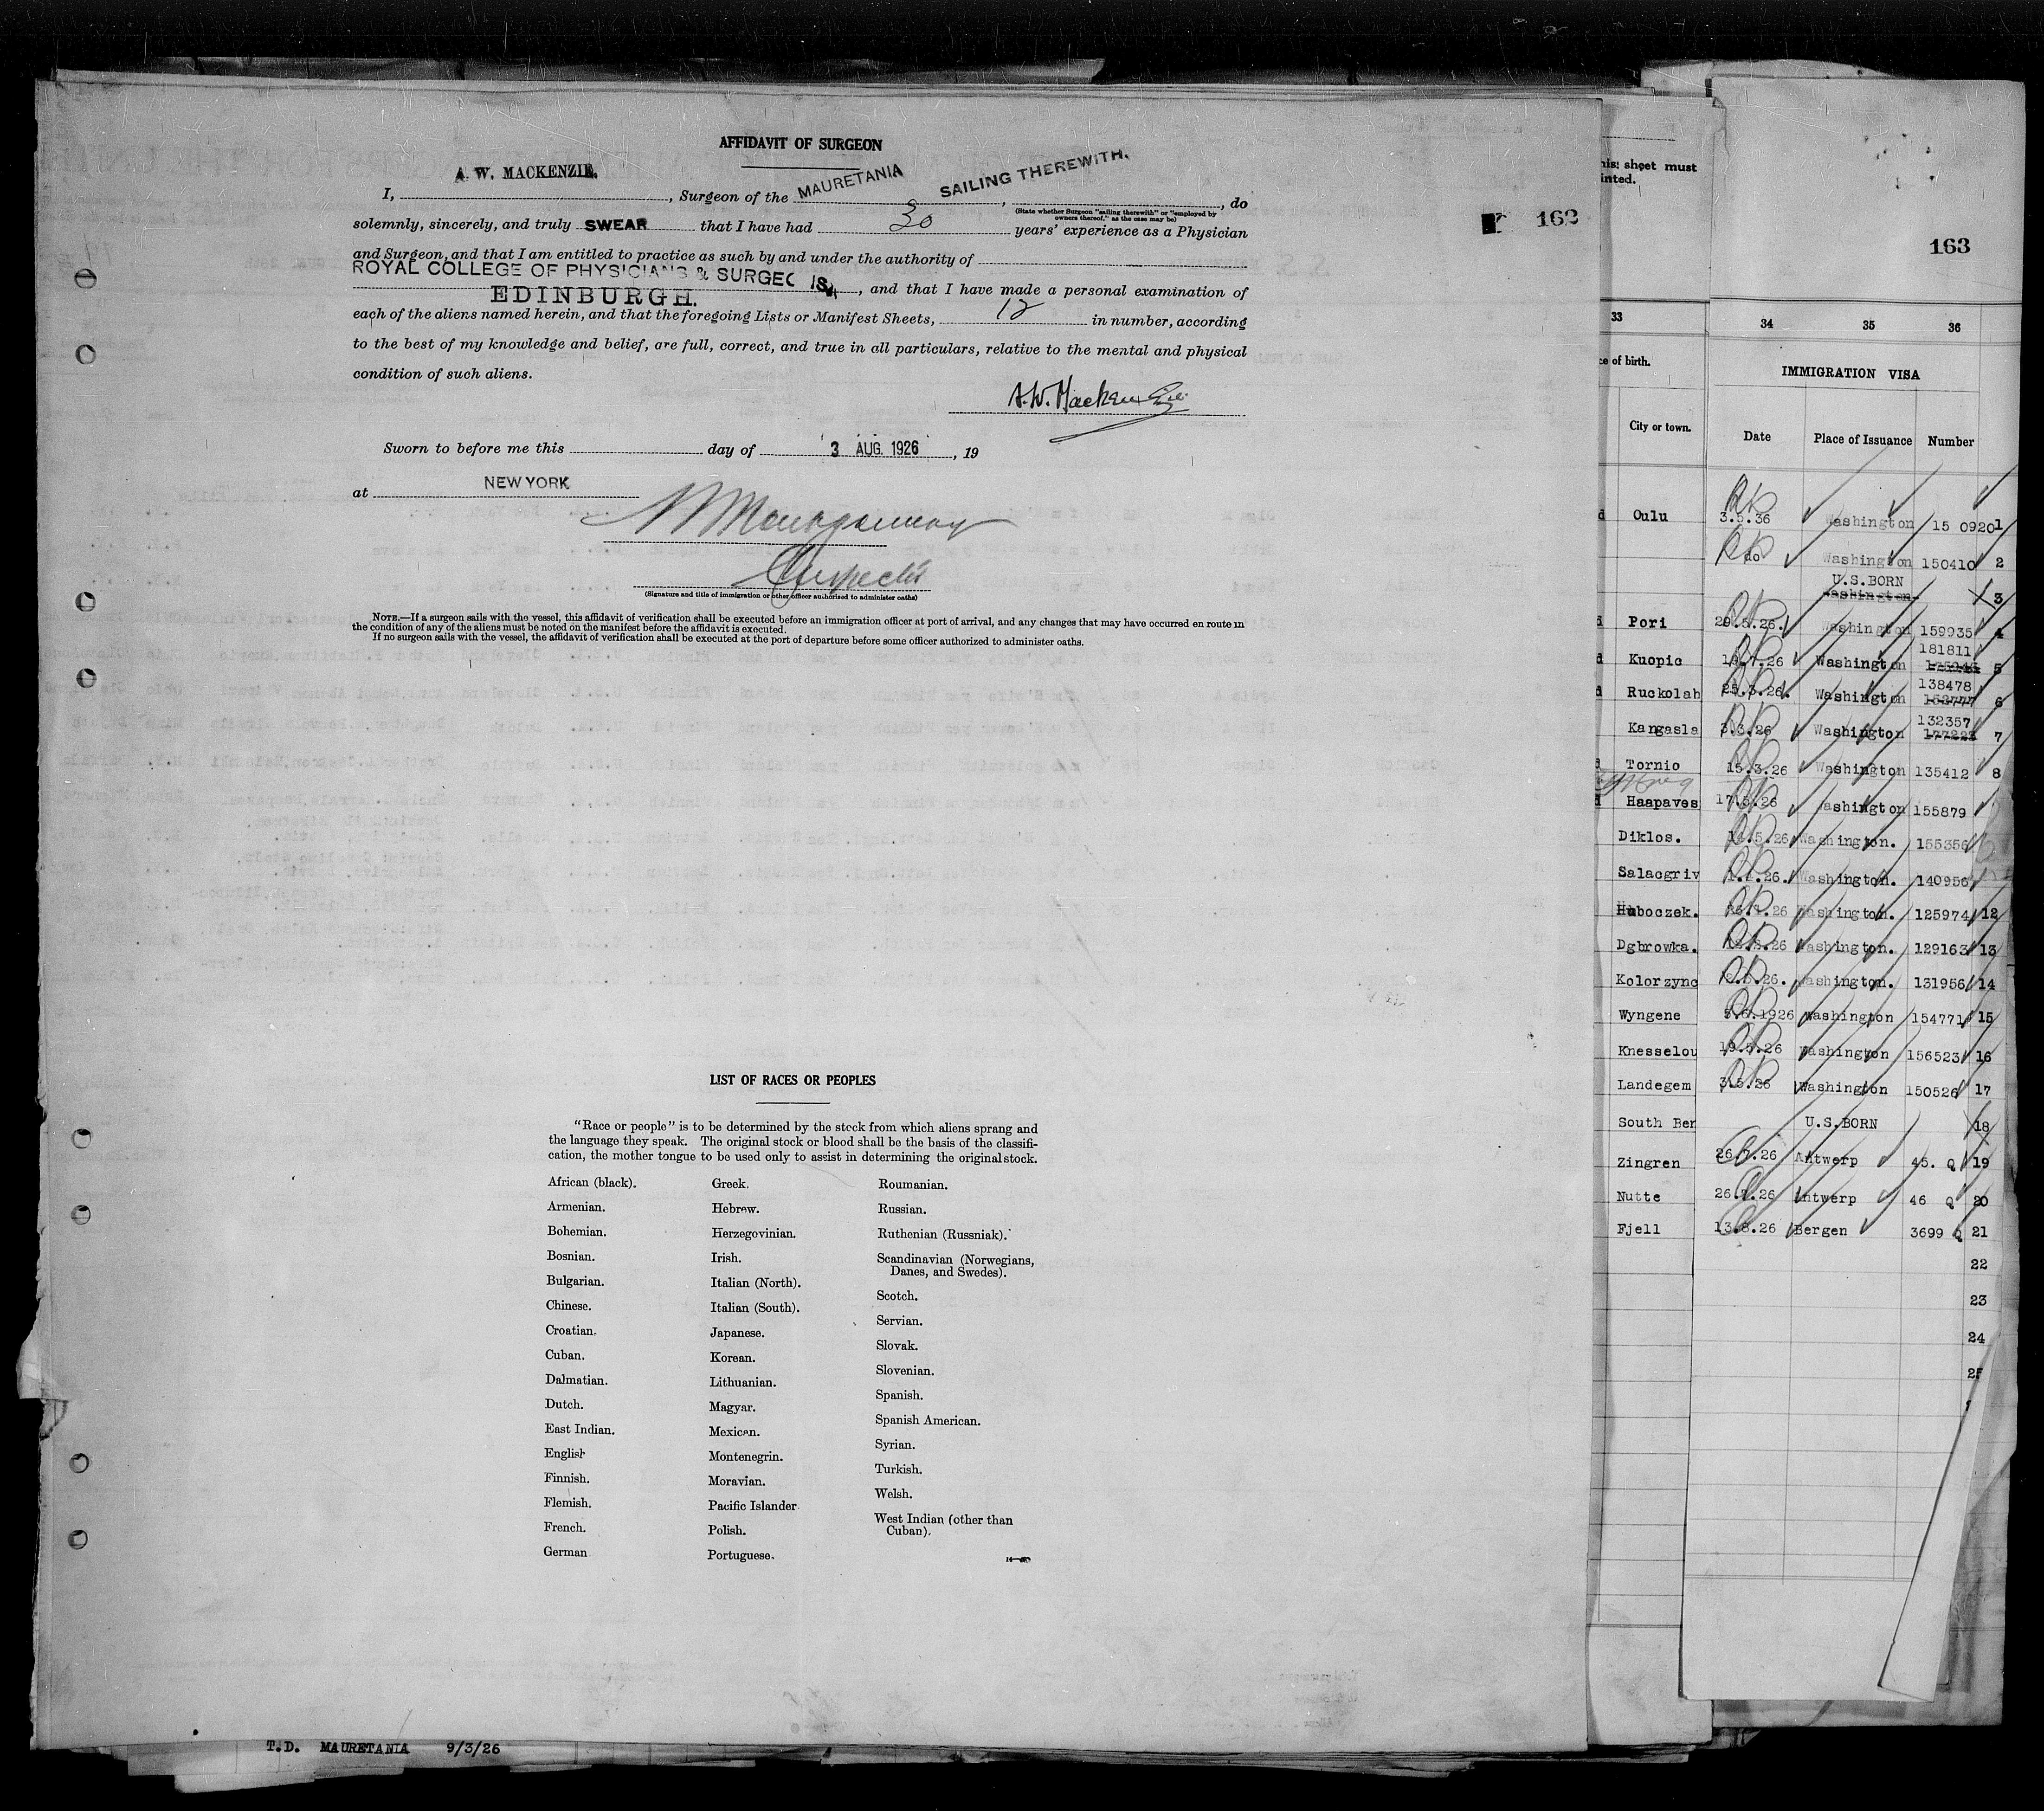 AFFIDAVIT OF SURGEON
A. W. MACKENZIE.
I, , Surgeon of the MAURETANIA , SAILING THEREWITH. , do
(State whether Surgeon "sailing therewith" or "employed by
owners thereof," as the case may be)
solemnly, sincerely, and truly SWEAR that I have had 30 years' experience as a Physician
and Surgeon, and that I am entitled to practice as such by and under the authority of
ROYAL COLLEGE OF PHYSICIANS & SURGEO NS , and that I have made a personal examination of
EDINBURGH.
each of the aliens named herein, and that the foregoing Lists or Manifest Sheets, 12 in number, according
to the best of my knowledge and belief, are full, correct, and true in all particulars, relative to the mental and physical
condition of such aliens.
A.W. Mackenzie
Sworn to before me this day of 3 AUG. 1926 , 19
at NEW YORK
(Signature and title of immigration or other officer authorised to administer oaths)
NOTE.—If a surgeon sails with the vessel, this affidavit of verification shall be executed before an immigration officer at port of arrival, and any changes that may have occurred en route in
the condition of any of the aliens must be noted on the manifest before the affidavit is executed.
If no surgeon sails with the vessel, the affidavit of verification shall be executed at the port of departure before some officer authorized to administer oaths.
162
LIST OF RACES OR PEOPLES
"Race or people" is to be determined by the stock from which aliens sprang and
the language they speak. The original stock or blood shall be the basis of the classifi-
cation, the mother tongue to be used only to assist in determining the original stock.
African (black).
Armenian.
Bohemian.
Bosnian.
Bulgarian.
Chinese.
Croatian.
Cuban.
Dalmatian.
Dutch.
East Indian.
English
Finnish.
Flemish.
French.
German
Greek.
Hebrew.
Herzegovinian.
Irish.
Italian (North).
Italian (South).
Japanese.
Korean.
Lithuanian.
Magyar.
Mexican.
Montenegrin.
Moravian.
Pacific Islander
Polish.
Portuguese.
Roumanian.
Russian.
Ruthenian (Russniak).
Scandinavian (Norwegians,
Danes, and Swedes).
Scotch.
Servian.
Slovak.
Slovenian.
Spanish.
Spanish American.
Syrian.
Turkish.
Welsh.
West Indian (other than
Cuban).
T.D. MAURETANIA 9/3/26
his sheet must
inted.
163
33 34 35 36
ce of birth. IMMIGRATION VISA
City or town. Date Place of Issuance Number
Oulu 3.5.36 Washington 15 0920 1
do Washington 150410 2
U.S.BORN
Washington 3
Pori 29.5.26. Washington 159935 4
181811
Kuopio 19.7.26 Washington 5
138478
Ruckolah 25.3.26. Washington 6
132357
Kangasla 3.3.26 Washington 177223 7
Tornio 15.3.26 Washington 135412 8
Haapaves 17.5.26 Washington 155879
Diklos. 14.5.26 Washington. 155356
Salacgriv Washington. 140956
Huboczek. Washington. 125974 12
Dgbrowka. Washington. 129163 13
Kolorzync Washington. 131956 14
Wyngene Washington 154771 15
Knesselou 19.5.26 Washington 156523 16
Landegem 3.5.26 Washington 150526 17
South Ben U.S.BORN 18
Zingren 26.7.26 Antwerp 45. Q 19
Nutte 26.7.26 Antwerp 46 Q 20
Fjell 13.8.26 Bergen 3699 Q 21
22
23
24
25